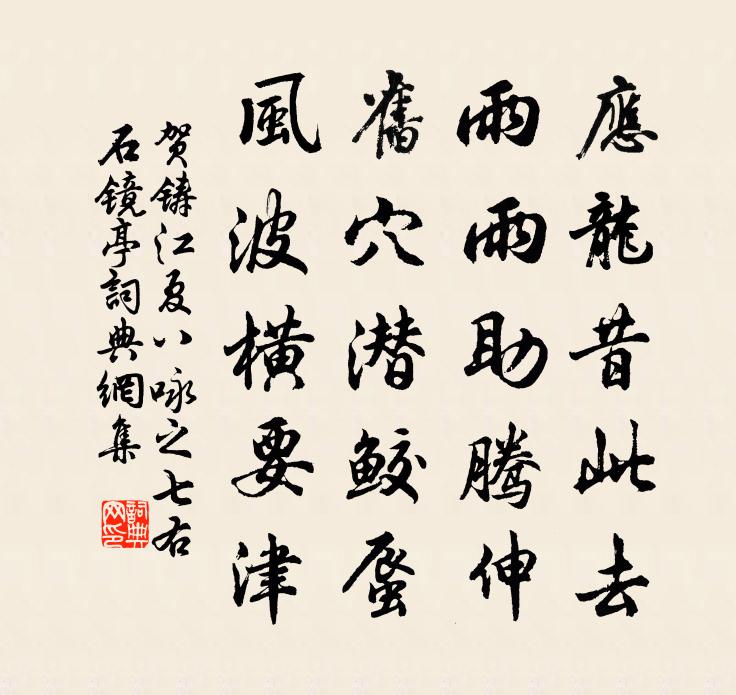 應龍昔此去
雨雨助騰伸
舊穴潜鮫蜃
風波橫要津
賀鑄江夏八咏之七右
石鏡亭詞典網集
詞典
网印